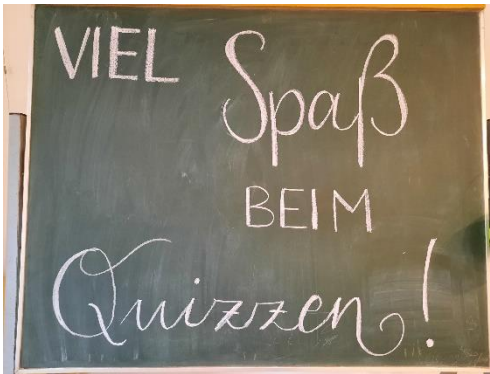 VIEL Spaß
BEIM
Quizzen!